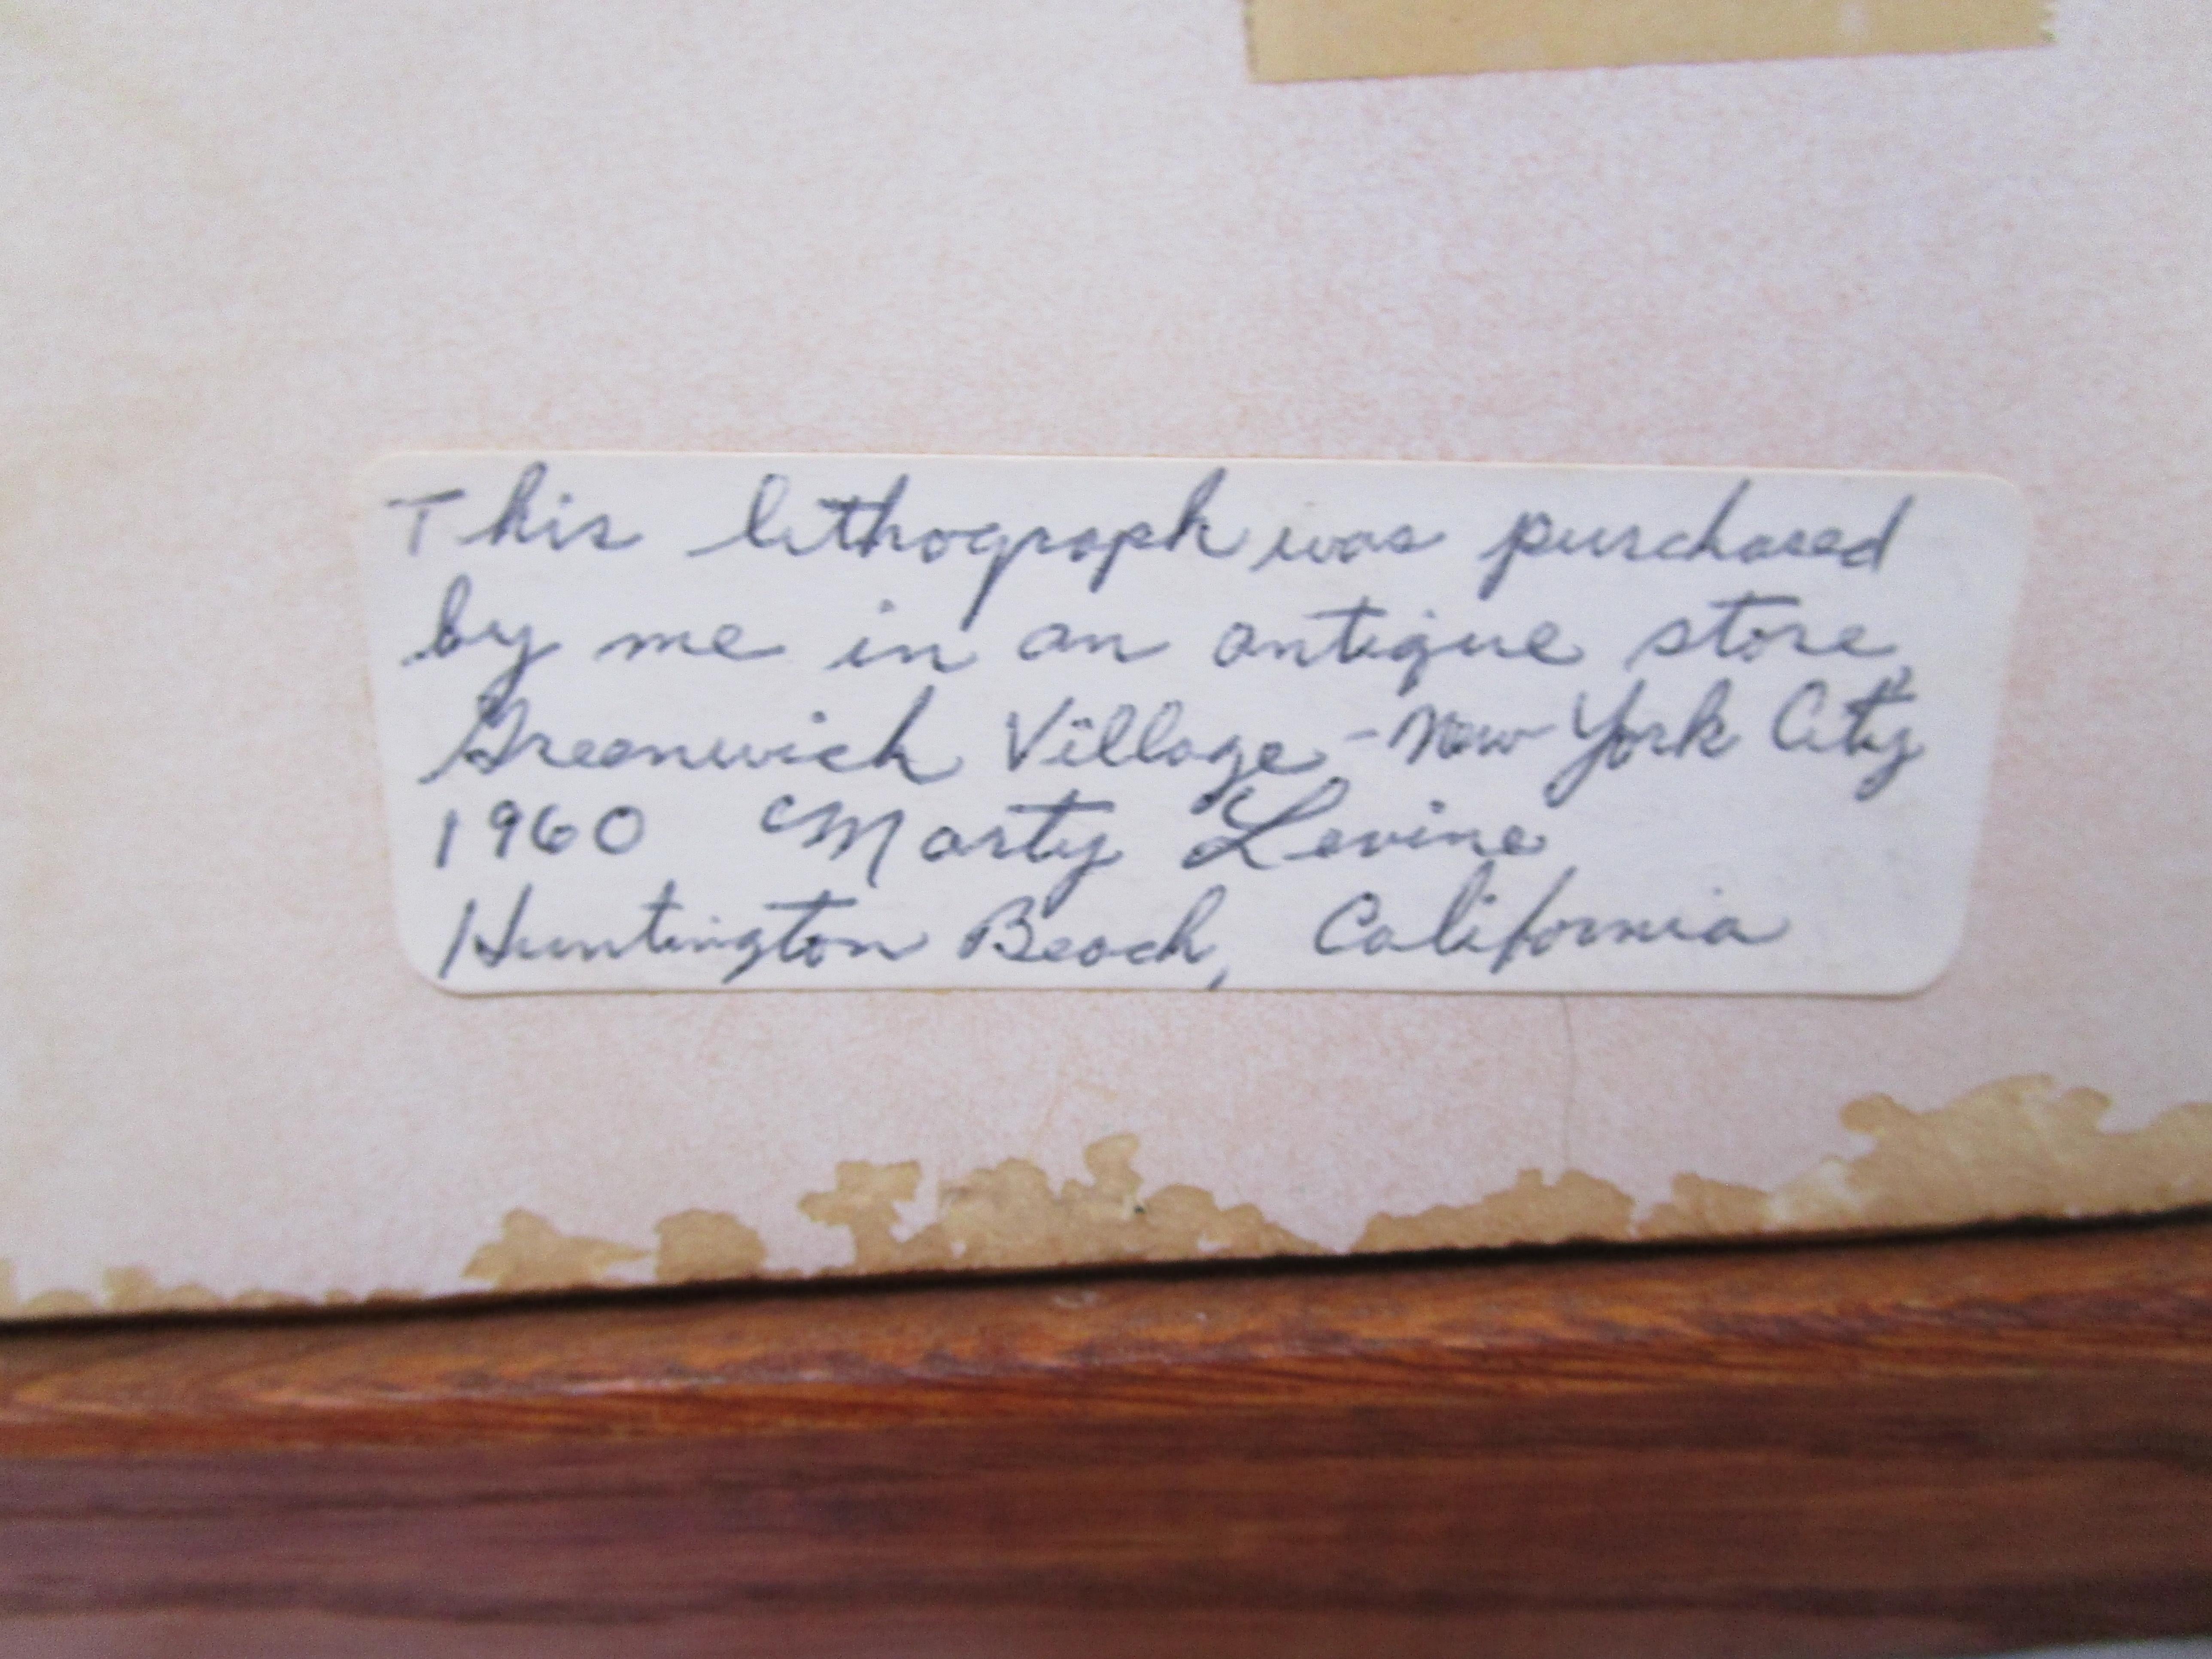 This lithograph was purchased
by me in an antique store,
Greenwich Village - New York City
1960 Marty Levine
Huntington Beach, California